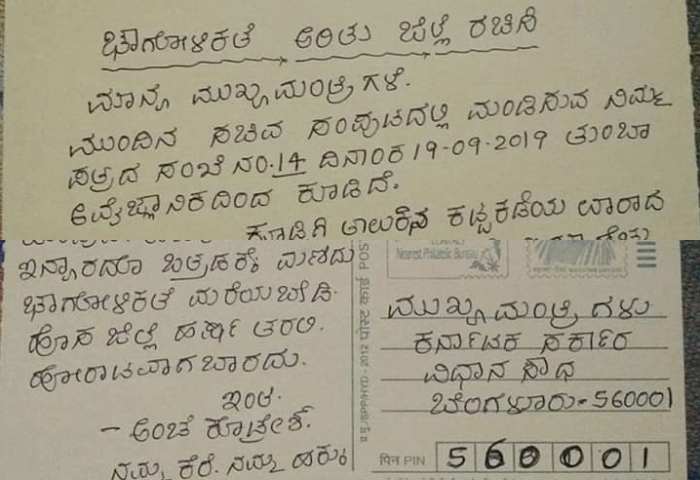 ಭೌಗೋಳಿಕತೆ ಅರಿತು ಜಿಲ್ಲೆ ರಚಿಸಿ
ಮಾನ್ಯ ಮುಖ್ಯಮಂತ್ರಿಗಳೆ.
ಮುಂದಿನ ಸಚಿವ ಸಂಪುಟದಲ್ಲಿ ಮಂಡಿಸುವ ನಿಮ್ಮ
ಪತ್ರದ ಸಂಖೆ ನಂ.14 ದಿನಾಂಕ 19-09-2019 ತುಂಬಾ
ಅವೈಜ್ಞಾನಿಕದಿಂದ ಕೂಡಿದೆ.
ಕೂಡ್ಲಿಗಿ ತಾಲುಕಿನ ಕಟ್ಟಕಡೆಯ
ಇನ್ಯಾರದೂ ಒತ್ತಡಕ್ಕೆ ಮಣಿದು
ಭೌಗೋಳಿಕತೆ ಮರೆಯಬೇಡಿ.
ಹೊಸ ಜಿಲ್ಲೆ ಹರ್ಷ ತರಲಿ.
ಹೋರಾಟವಾಗಬಾರದು.
ಇಂತಿ.
- ಅಂಚೆ ಕೊಟ್ರೇಶ್.
ನಮ್ಮ ಕೆರೆ. ನಮ್ಮ ಹಕ್ಕು
Nearest Philatelic Bureau
ಮುಖ್ಯಮಂತ್ರಿಗಳು
ಕರ್ನಾಟಕ ಸರ್ಕಾರ
ವಿಧಾನ ಸೌಧ
ಬೆಂಗಳೂರು-560001
पिन PIN 560001